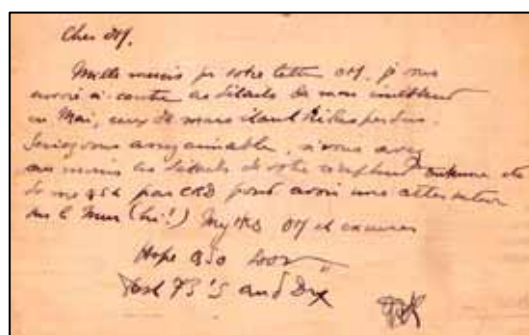 Cher OM,
Mille mercis pr votre lettre OM, je vous
envoie ci-contre les détails de mon
en Mai, ceux de mars étant hélas perdus.
Seriez vous assez aimable, si vous avez
les détails de votre antenne etc
de me QSL par CRD pour avoir une
sur le mur (hi!) Mny tks OM et excuses
Hope QSO soon
Best 73's and Dx